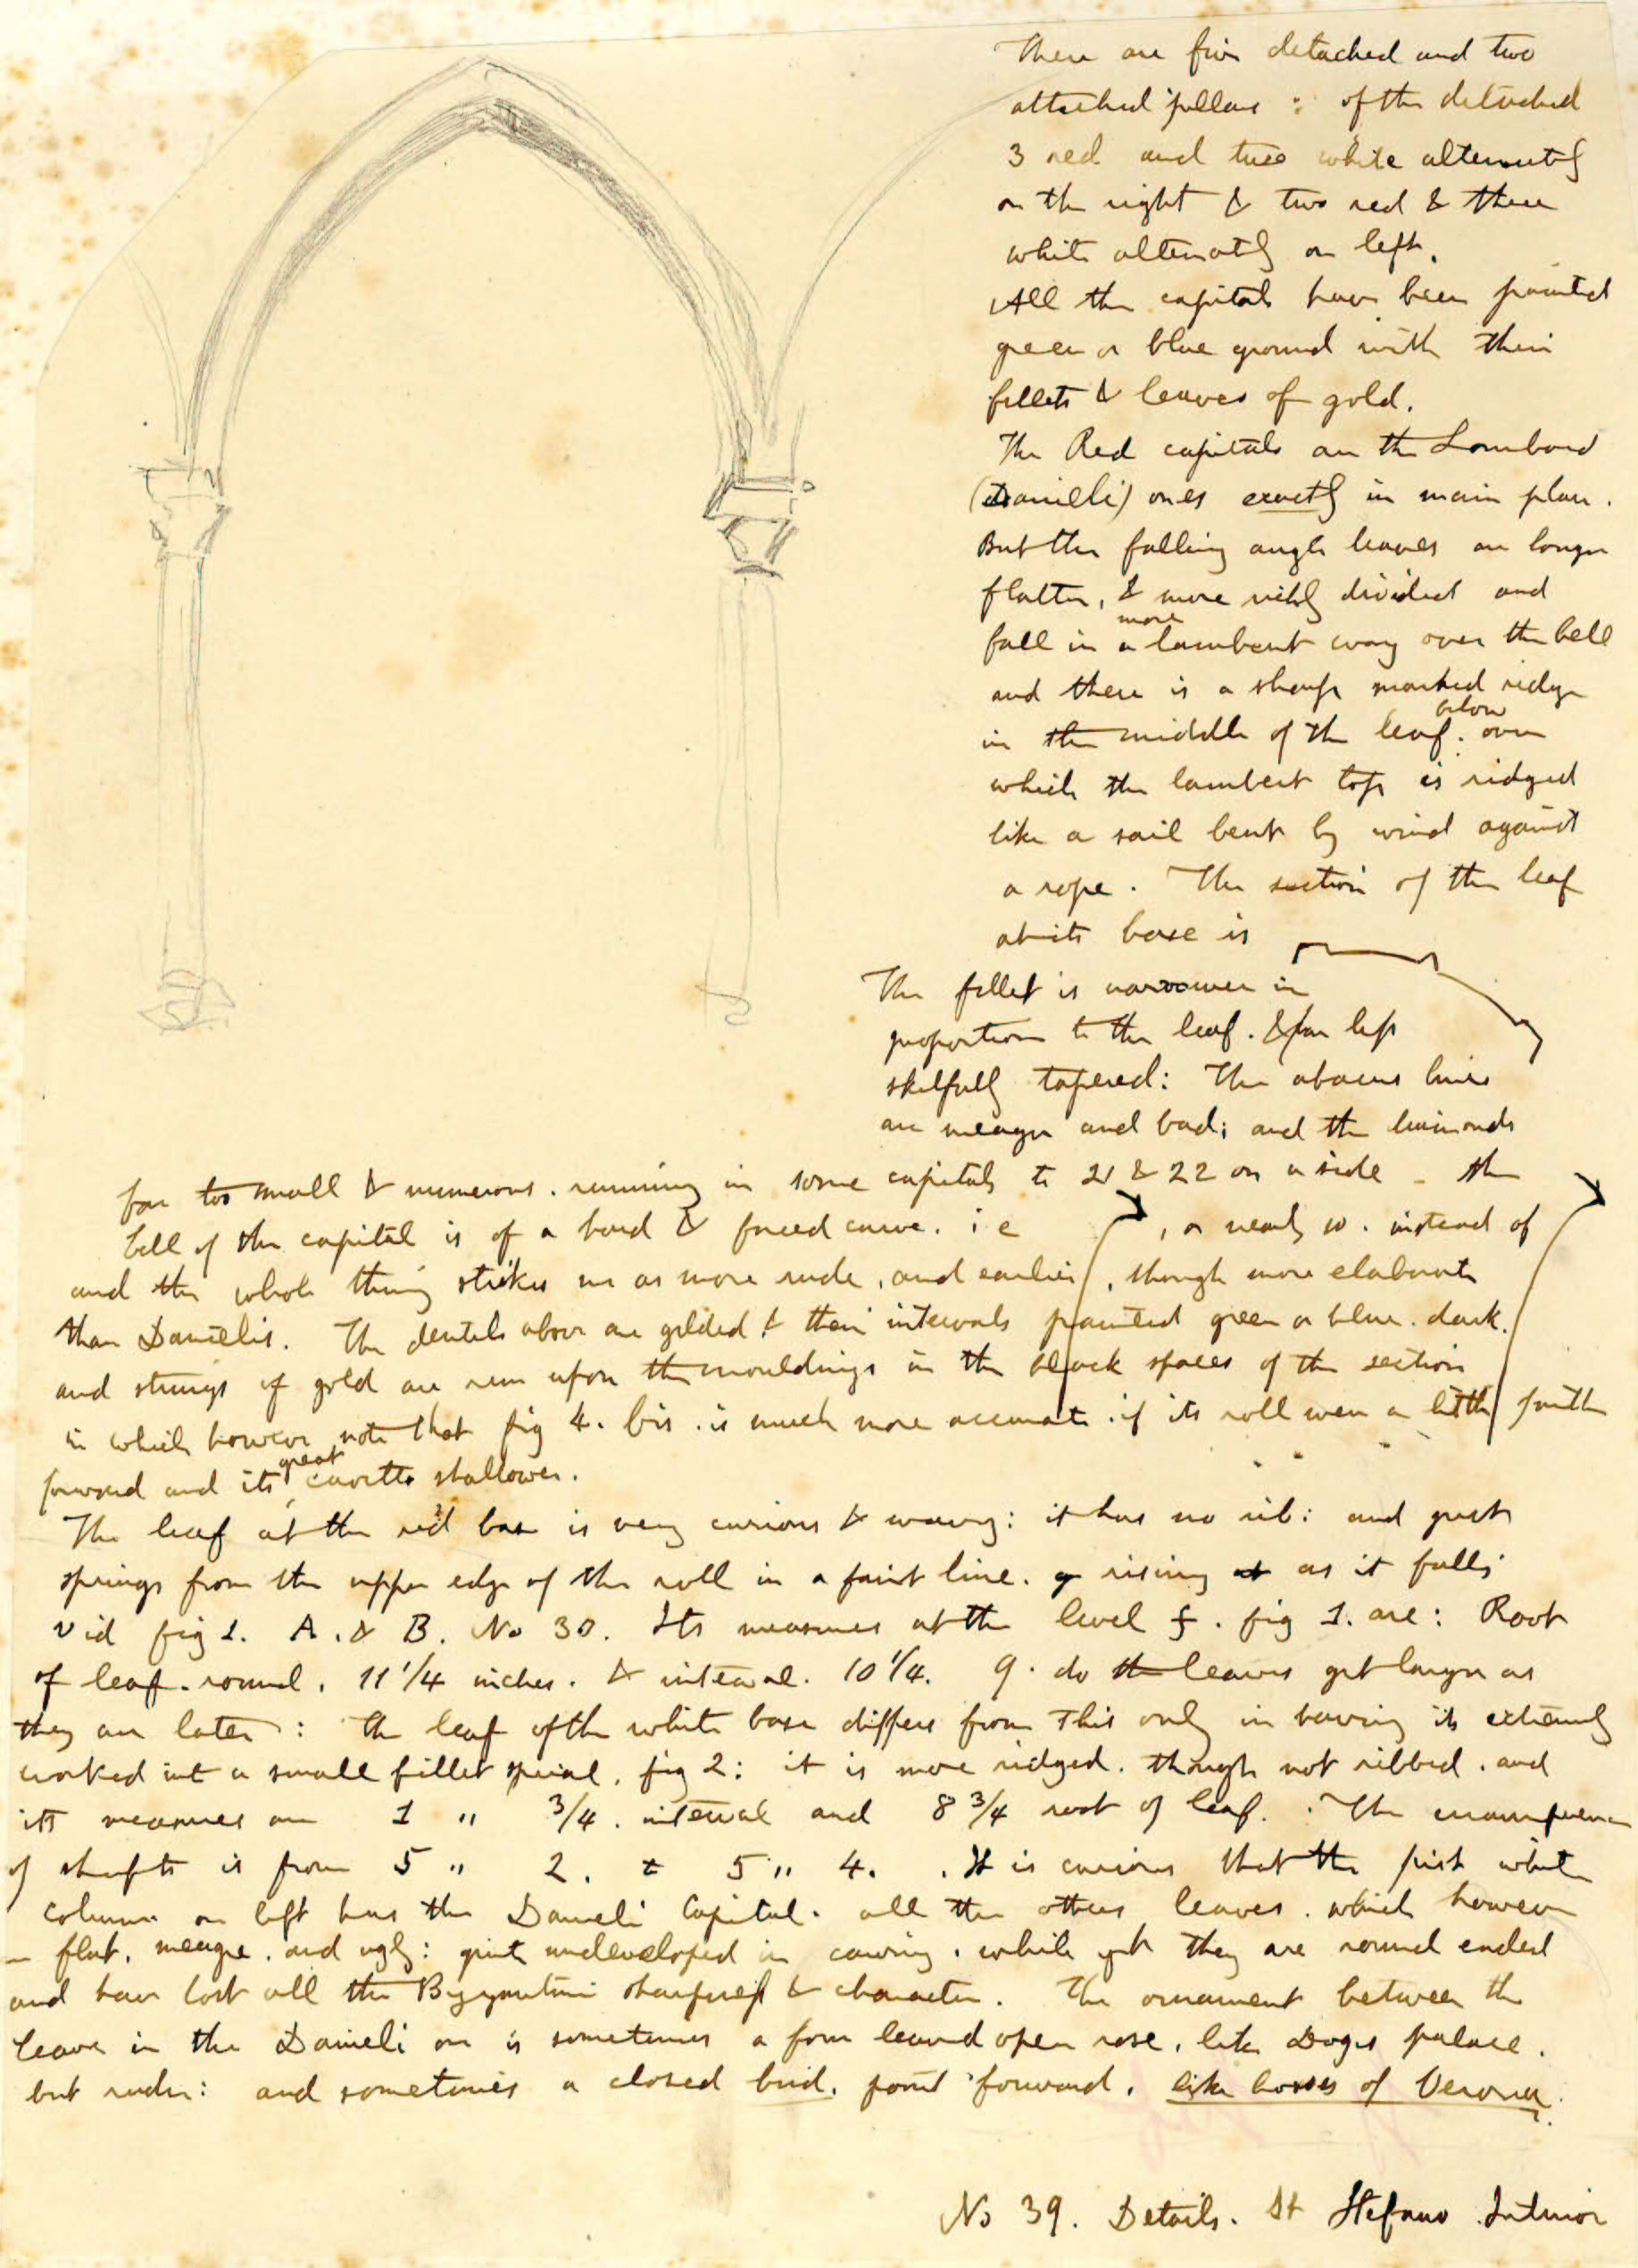 There are five detached and two
attached pillars : of the detached
3 red and two white alternately
on the right & two red & three
white alternately on left.
All the capitals have been painted
green or blue ground with their
fillets & leaves of gold.
The Red capitals are the Lombard
(Danieli) ones exactly in main plan.
But the falling angle leaves are longer
flatter, & more richly divided and
fall in a more lambent way over the bell
and there is a sharp marked ridge
in the middle of the leaf. below over
which the lambent top is ridged
like a sail bent by wind against
a rope. The section of the leaf
at its base is
The fillet is narrower in
proportion to the leaf. & far less
skilfully tapered: The abacus lines
are meagre and bad; and the
far too small & numerous. running in some capitals to 21 & 22 on a side - the
bell of the capital is of a hard & forced curve. i e , or nearly so. instead of
and the whole thing strikes me as more rude, and earlier, though more elaborate
than Danielis. The dentils above are gilded & their intervals painted green or blue. dark.
and strings of gold are run upon the mouldings in the black spaces of the section
in which however note that fig 4. bis. is much more accurate. if its roll were a little farther
forward and its great cavetto shallower.
The leaf at the red base is very curious & wavy: it has no rib: and just
springs from the upper edge of the roll in a faint line. rising as it falls
vid fig 1. A. & B. No 30. Its measures at the level f. fig 1. are: Root
of leaf. round. 11 1/4 inches. & interval. 10 1/4. q. do the leaves get larger as
they are later: the leaf of the white base differs from this only in having its extremity
worked into a small fillet spiral. fig 2: it is more ridged. though not ribbed. and
its measures are 1 " 3/4. interval and 8 3/4 root of leaf. The circumference
of shafts is from 5 " 2. to 5 " 4. . It is curious that the first white
column on left has the Danieli Capital. all the others leaves. which however
flat, meagre. and ugly: quite undeveloped in carving. while yet they are round ended
and have lost all the Byzantine sharpness & character. The ornament between the
leaves in the Danieli one is sometimes a four leaved open rose, like Doges palace.
but ruder: and sometimes a closed bud. point forward. like bosses of Verona.
No 39. Details. St Stefano Interior